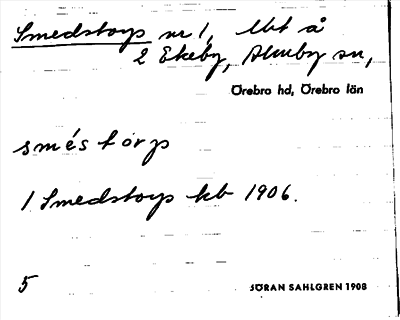 Smedstorp nr 1, Utj å
2 Ekeby, Almby sn,
Örebro hd, Örebro län
sméstorp
1 Smedstorp kb 1906.
5
JÖRAN SAHLGREN 1908